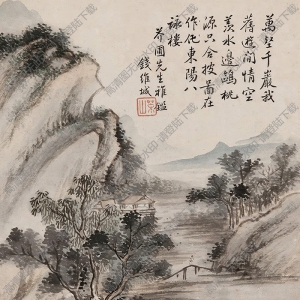 萬壑千巖我
舊遊閒情空
羨水邊鷗桃
源只合披圖在
作化東陽八
詠樓
芥園先生雅鑑
錢維城